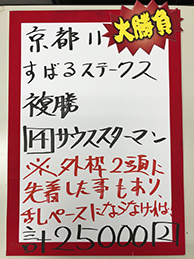 大勝負
京都11
すばるステークス
複勝
14 サウススターマン
※外枠2頭に
先着した事もあり
乱ペースにならなければ
計25000円